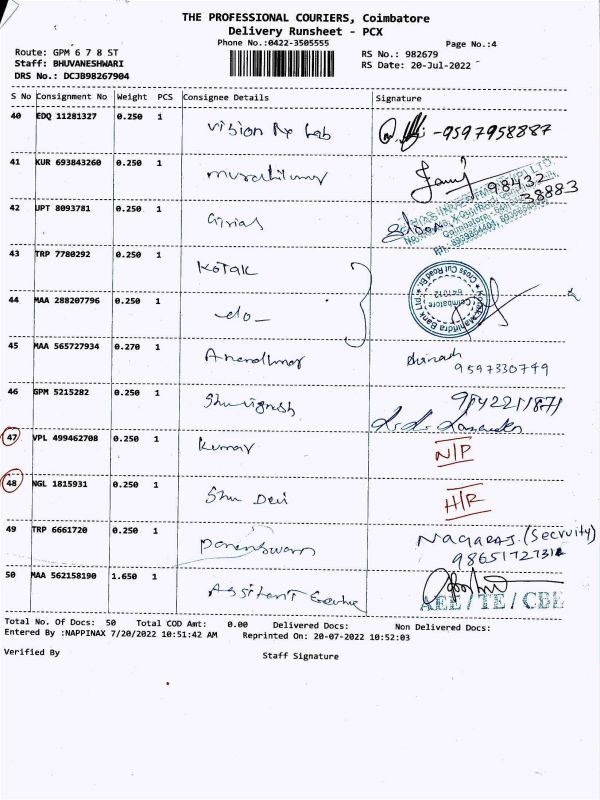 THE PROFESSIONAL COURIERS, Coimbatore
Delivery Runsheet - PCX
Phone No.:0422-3505555
Page No.:4
Route: GPM 6 7 8 ST
RS No.: 982679
Staff: BHUVANESHWARI
RS Date: 20-Jul-2022
DRS No.: DCJB98267904
S No Consignment No Weight PCS Consignee Details Signature
40 EDQ 11281327 0.250 1 Vision Lab -9597958887
41 KUR 693843260 0.250 1 98432
38883
42 UPT 8093781 0.250 1
43 TRP 7780292 0.250 1 KOTAK
Kotak Mahindra Bank
Coimbatore
641012
44 MAA 288207796 0.250 1 -do-
45 MAA 565727934 0.270 1
9597330749
46 GPM 5215282 0.250 1 Shri vignesh
47 VPL 499462708 0.250 1 Kumar N/P
48 NGL 1815931 0.250 1 Shri Devi H/R
49 TRP 6661720 0.250 1 NAGARAJ. (Secruity)
50 MAA 562158190 1.650 1 Assitant Executive
AEE / TE / CBE
Total No. Of Docs: 50 Total COD Amt: 0.00 Delivered Docs: Non Delivered Docs:
Entered By :NAPPINAX 7/20/2022 10:51:42 AM Reprinted On: 20-07-2022 10:52:03
Verified By
Staff Signature